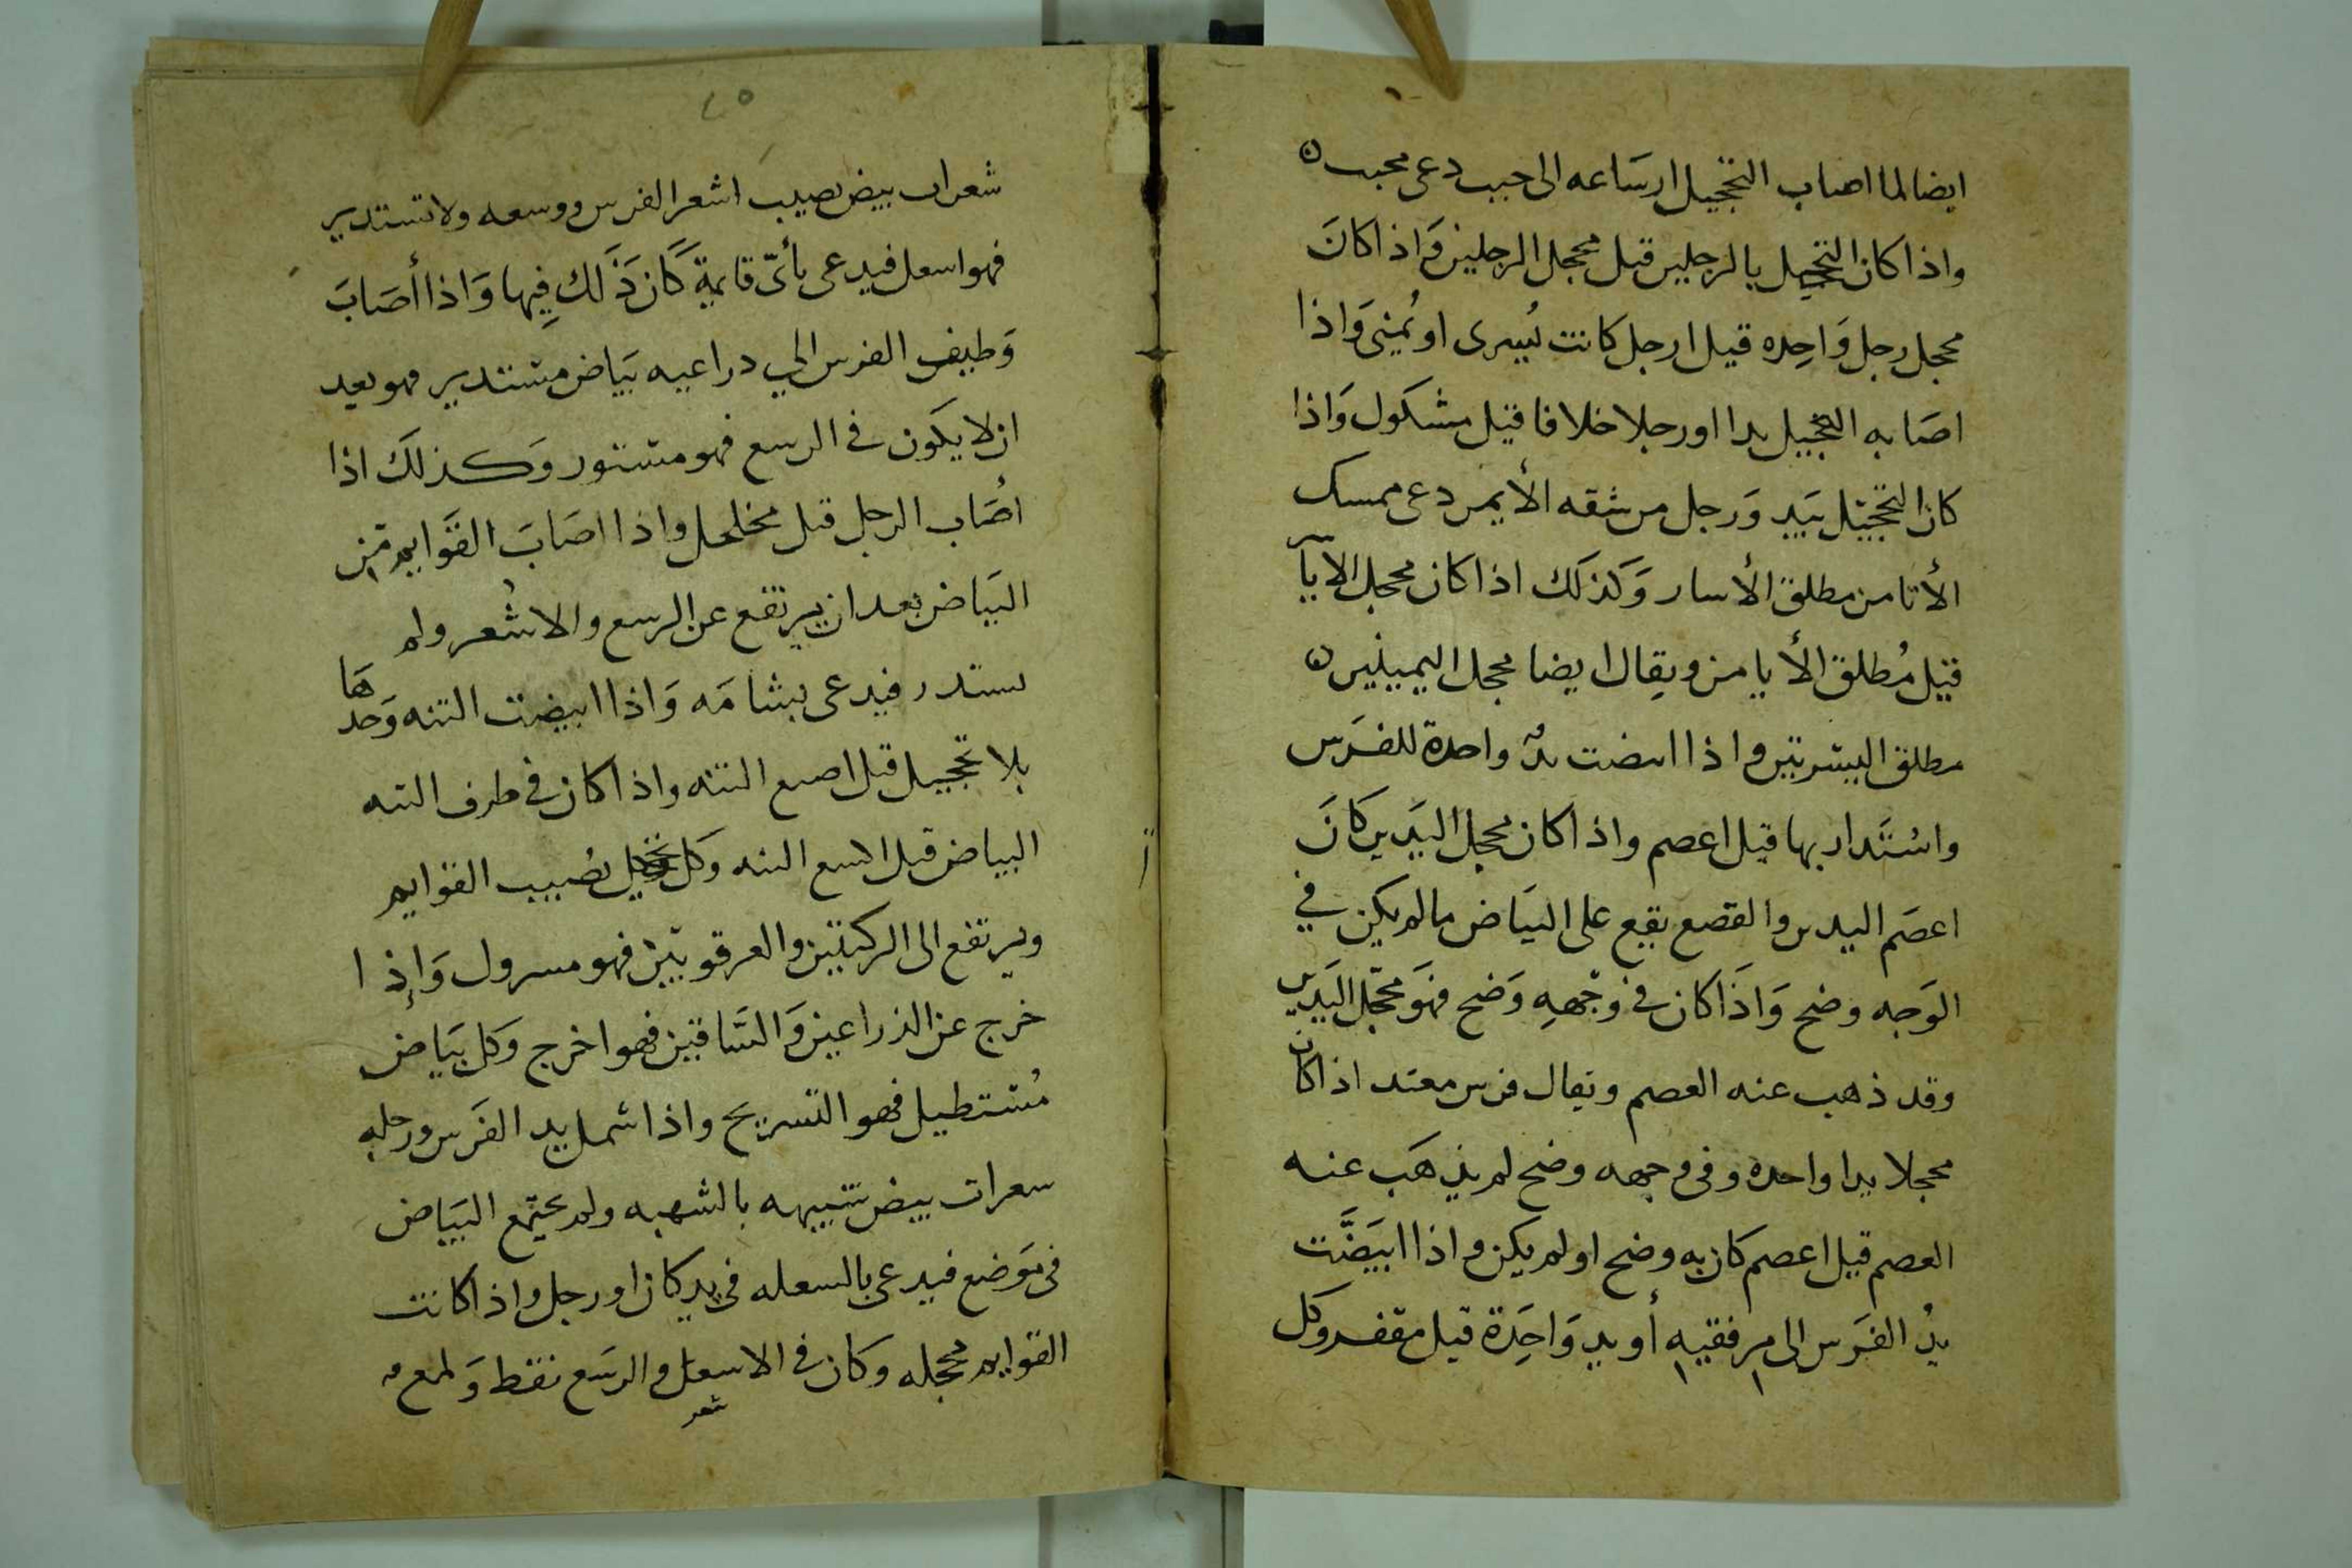 ايضا لما اصاب التحجيل ارساعه الى جبب دعى محبب ں
واذا كان التحجيل بالرجلين قيل محجل الرجلين وَاذا كانَ
محجل رجل وَاحِده قيل ارجل كانت يُسرى او يُمنى وَاذا
اصَابه التحجيل يدا اورجلا خلافا قيل مشكول وَاذا
كان التحجيل بَيدٍ وَرجل من شقه الأيمن دعى ممسك
الأيامن مطلق الأياسار وَكذلك اذا كان محجل الايآسر
قيل مُطلق الأيامن ويقال ايضا محجل اليمينين ں
مطلق اليسرتين واذا ابيضت يدٌ واحدة للفرَس
واسْتَدار بها قيل اعصم واذا كان محجل اليَدين كانَ
اعصَم اليدين والقصع بقيع على البيَاض مالم يكن في
الوَجه وضح وَاذَا كان في وَجْههِ وَضح فهَو محجّل اليَدين
وقد ذهب عنه العصم ويقال فرس معتد اذا كان
محجلا يدا واحده وفى وجهه وضح لم يذهَب عنه
العصم قيل اعصم كان به وضح او لم يكن واذا ابيَضَّت
يدُ الفرَس الى مرفقيه أويد وَاحِدَة قيل مقفز وكل
٢٥
شعرات بيض يصيب اشعر الفرس ووسعه ولاتستدير
فهو اسعل فيدعى بأىّ قايمةٍ كَان ذَلك فِيها وَاذا أصَابَ
وَظيف الفرس الي دراعيه بيَاض مستدير فهو بعيد
ان لا يكَون في الرسع فهو مستور وَكذلكَ اذا
اصُاب الرجل قيل مخلخل واذا اصَابَ القوايم من
البيَاض بعد ان يرتفع عن الرسع والاشعر ولم
يستدر فيدعى بشامَه وَاذا ابيضت الثنه وَحدهَا
بلا تحجيل قيل اصبع الثنه واذا كان في طرف الثنه
البياض قيل اسبع الثنه وكل تحجيل يصُيب القوايم
ويرتفع الى الركبتين والعرقوبَين فهو مسرول وَإذ ا
خرج عن الذراعين وَالسَّاقين فهو اخرج وَكل بيَاض
مُستطيل فهو التسريح واذا شمل يد الفَرس ورجله
سعرات بيض شبيهه بالشهبه ولم يجتمع البيَاض
فى مَوضع فيدعى بالسعله في يد كان او رجل واذا كانت
القوايم محجله وكان في الاسعل والرسَع نقط وَلمع
شعر